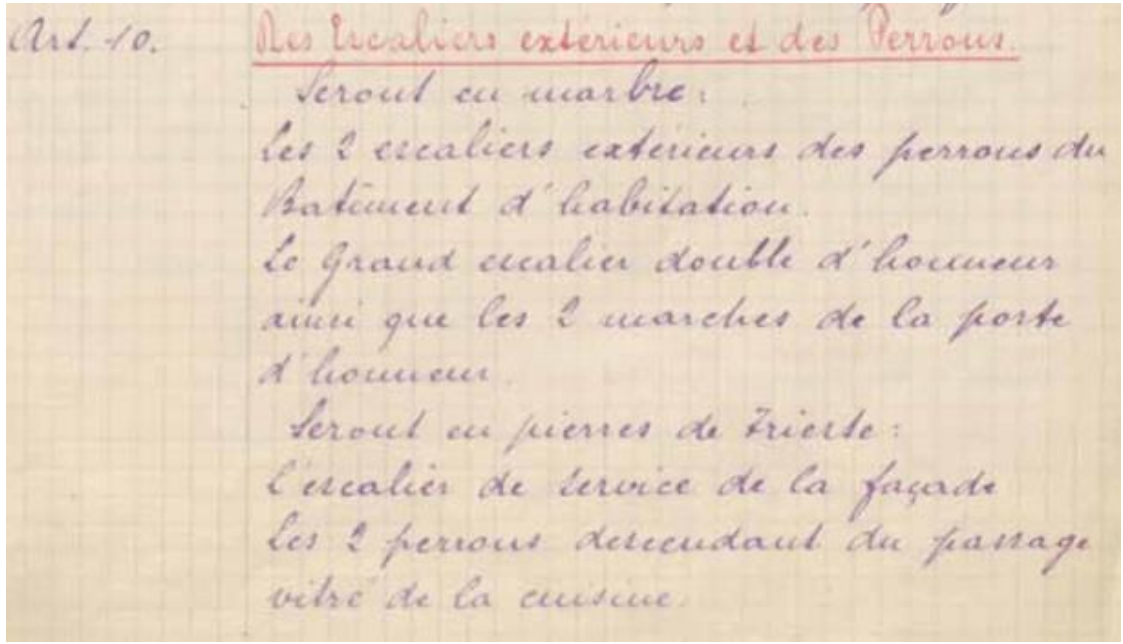 Art. 10. Des Escaliers extérieurs et des Perrons.
Seront en marbre:
Les 2 escaliers extérieurs des perrons du
Batiment d'habitation.
Le Grand escalier double d'honneur
ainsi que les 2 marches de la porte
d'honneur.
Seront en pierres de Trieste:
L'escalier de service de la façade
Les 2 perrons descendant du passage
vitré de la cuisine.